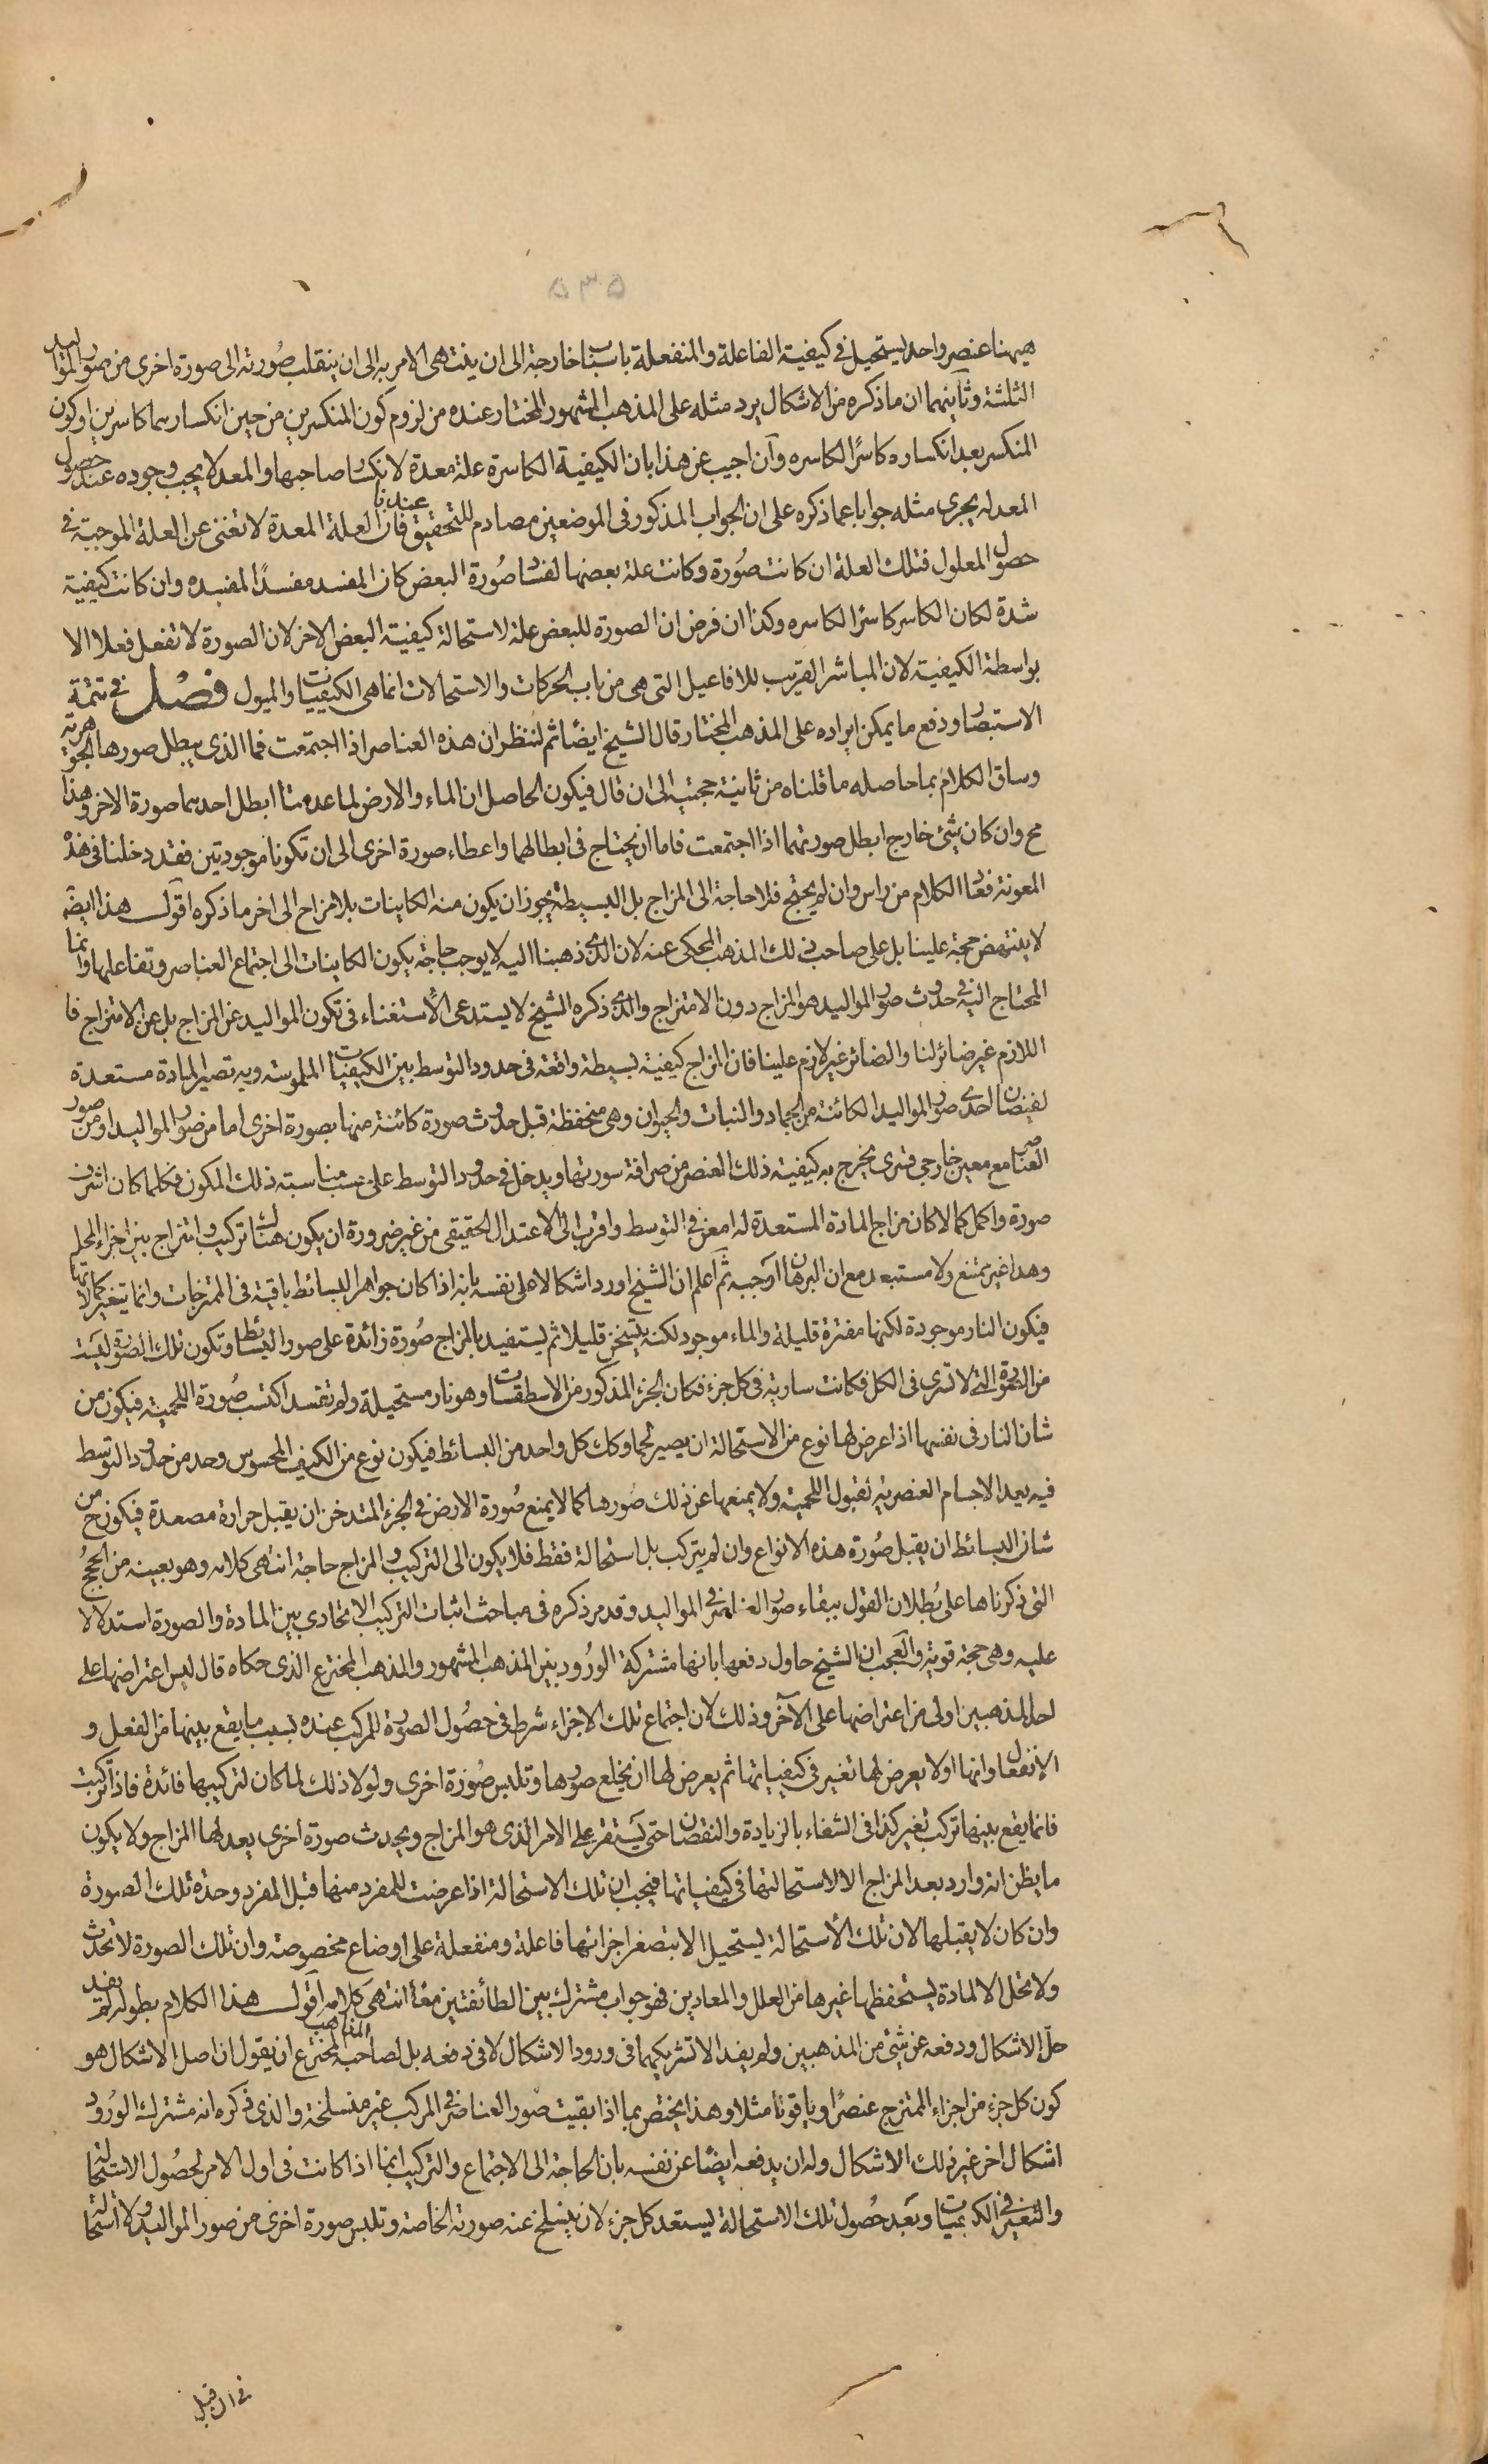 ۵۳۵
هيهنا عنصر واحد يستحيل فى كيفية الفاعلة والمنفعلة باسباب خارجة الى ان ينتهى الامر به الى ان ينقلب صُورته الى صورة اخرى من صور المواليد
الثلثة وثانيهما ان ما ذكره من الاشكال يرد مثله على المذهب المشهور المختار عنده من لزوم كون المنكسرين من حين انكسارهما كاسرين او كون
المنكسر بعد انكساره كاسرًا لكاسره وآن اجيب عن هذا بان الكيفية الكاسرة علة معدة لانكسار صاحبها والمعد لا يجب وجوده عند حصول
المعد له يجرى مثله جوابا عما ذكره على ان الجواب المذكور فى الموضعين مصادم للتحقيق عندنا فان العلة المعدة لا تغنى عن العلة الموجبة فى
حصول المعلول فتلك العلة ان كانت صُورة وكانت علة بعضها لفساد صُورة البعض كان المفسد مفسدًا لمفسده وان كانت كيفية
شدة لكان الكاسر كاسرًا لكاسره وكذا ان فرض ان الصورة للبعض علة لاستحالة كيفية البعض الاخر لان الصورة لا تفعل فعلا الا
بواسطة الكيفية لان المباشر القريب للافاعيل التى هى من باب الحركات والاستحالات انما هى الكيفيات والميول فصل فى تتمة
الاستبصار ودفع ما يمكن ايراده على المذهب المختار قال الشيخ ايضًا ثم لننظر ان هذه العناصر اذا اجتمعت فما الذى يبطل صورها الجوهرية
وساق الكلام بما حاصله ما قلناه من ثانية حجتيه الى ان قال فيكون الحاصل ان الماء والارض لما عدمتا ابطل احدهما صورة الاخر وهذا
مح وان كان شئ خارج ابطل صورتهما اذا اجتمعت فاما ان يحتاج فى ابطالهما واعطاء صورة اخرى الى ان تكونا موجودتين فقد دخلنا فى هذه
المعونة فعاد الكلام من راس وان لم يحتج فلا حاجة الى المزاج بل البسيطة يجوز ان يكون منه الكاينات بلا مزاج الى اخر ما ذكره اقول هذا ايضه
لا ينتهض حجة علينا بل على صاحب ذلك المذهب المحكى عنه لان الذى ذهبنا اليه لا يوجب حاجة يكون الكاينات الى اجتماع العناصر وتفاعلها وانما
المحتاج اليه فى حدوث صور المواليد هو المزاج دون الامتزاج والذى ذكره الشيخ لا يستدعى الأستغناء فى تكون المواليد عن المزاج بل عن الامتزاج فا
اللازم غير ضائر لنا والضائر غير لازم علينا فان المزاج كيفية بسيطة واقعة فى حدود التوسط بين الكيفيات الملموسة وبه تصير المادة مستعدة
لفيضان احدى صور المواليد الكائنة من الجماد والنبات والحيوان وهى منحفظة قبل حدوث صورة كائنة منها بصورة اخرى اما من صور المواليد او من صور
العناصر مع معين خارجى قسرى يخرج به كيفية ذلك العنصر من صرافة سورتها ويدخل فى حدود التوسط على حسب مناسبة ذلك المكون فكلما كان اشرف
صورة واكمل كمالا كان مزاج المادة المستعدة له امعن فى التوسط واقرب الى الاعتدال الحقيقى من غير ضرورة ان يكون هناك تركيب وامتزاج بين اجزاء المحل
وهذا غير ممتنع ولا مستبعد مع ان البرهان اوجبه ثم اعلم ان الشيخ اورد اشكالا على نفسه بانه اذا كان جواهر البسائط باقية فى الممتزجات وانما يتغير كمالاتها
فيكون النار موجودة لكنها مفترة قليلة والماء موجود لكنه يتسخن قليلا ثم يستفيد بالمزاج صُورة زائدة على صور البسائط وتكون تلك الصورة ليست
من الصورة التى لا تسرى فى الكل فكانت سارية فى كل جزء فكان الجزء المذكور من الاسطقسات وهو نار مستحيلة ولم تفسد اكتسب صُورة اللحمية فيكون من
شان النار فى نفسها اذا عرض لها نوع من الاستحالة ان يصير لحما وكك كل واحد من البسائط فيكون نوع من الكيف المحسوس وحد من حدود التوسط
فيه يعد الاجسام العنصرية لقبول اللحمية ولا يمنعها عن ذلك صورها كما لا يمنع صُورة الارض فى الجزء المتدخن ان يقبل حرارة مصعدة فيكون ح من
شان البسائط ان يقبل صُورة هذه الانواع وان لم يتركب بل استحالة فقط فلا يكون الى التركيب والمزاج حاجة انتهى كلامه وهو بعينه من الحجج
التى ذكرناها على بُطلان القول ببقاء صور العناصر فى المواليد وقد مر ذكره فى مباحث اثبات التركيب الاتحادى بين المادة والصورة استدلالا
عليه وهى حجة قوية والعجب ان الشيخ حاول دفعها بانها مشتركة الورود بين المذهب المشهور والمذهب المخترع الذى حكاه قال ليس اعتراضها على
احد المذهبين اولى من اعتراضها على الآخر وذلك لان اجتماع تلك الاجزاء شرط فى حصُول الصورة للمركب عنده بسبب ما يقع بينها من الفعل و
الانفعال وانها اولا يعرض لها تغير فى كيفياتها ثم يعرض لها ان يخلع صورها وتلبس صُورة اخرى ولولا ذلك لما كان لتركيبها فائدة فاذا تركبت
فانما يقع بينها تركب تغير كذا فى الشفاء بالزيادة والنقصان حتى يستقر على الامر الذى هو المزاج ويحدث صورة اخرى يعد لها المزاج ولا يكون
ما يظن انه وارد بعد المزاج الا لاستحالتها فى كيفياتها فيجب ان تلك الاستحالة اذا عرضت للمفرد منها قبل المفرد وحده تلك الصورة
وان كان لا يقبلها لان تلك الأستحالة يستحيل الا بتصغر اجزائها فاعلة ومنفعلة على اوضاع مخصوصة وان تلك الصورة لا تحدث
ولا تحل الا لمادة يستحفظها غيرها من العلل والمعادين فهو جواب مشترك بين الطائفتين معًا انتهى كلامه اقول هذا الكلام بطوله لم يفد
حلّ الاشكال ودفعه عن شئ من المذهبين ولم يفد الا تشريكهما فى ورود الاشكال لا فى دفعه بل لصاحب المذهب المخترع ان يقول ان اصل الاشكال هو
كون كل جزء من اجزاء الممتزج عنصرًا وياقوتا مثلا وهذا يختص بما اذا بقيت صور العناصر فى المركب غير منسلخة والذى ذكره انه مشترك الورُود
اشكال اخر غير ذلك الاشكال وله ان يدفعه ايضًا عن نفسه بان الحاجة الى الاجتماع والتركيب انما اذا كانت فى اول الامر لحصُول الاستحالة
والتغير فى الكيفيات وبَعد حُصول تلك الاستحالة يستعد كل جزء لان ينسلخ عنه صورته الخاصة وتلبس صورة اخرى من صور المواليد ولا استحالة
فى ان قبل